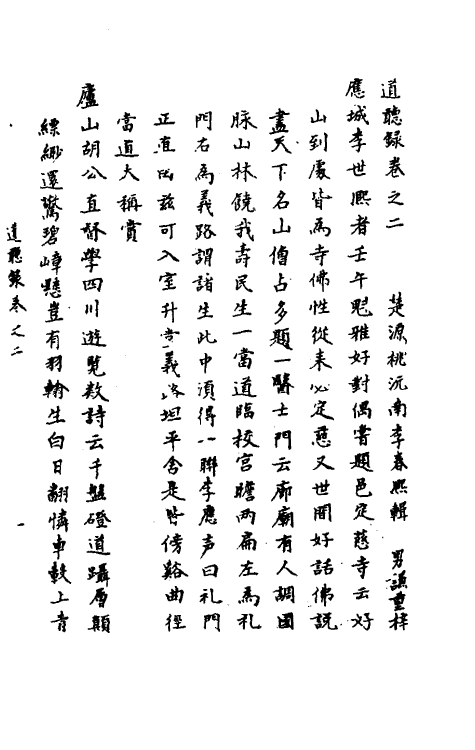 道聽錄卷之二　楚源桃沅南李春熙輯　男謙重梓
應城李世熙者壬午魁雅好對偶嘗題邑定慈寺云好
山到處皆爲寺佛性從來必定慈又世間好話佛說
盡天下名山僧占多題一醫士門云廊廟有人調國
脉山林饒我壽民生一當道臨校宮瞻兩扁左爲礼
門右爲義路謂諸生此中須得一聯李應声曰礼門
正直由兹可入室升堂義路坦平舍是皆傍谿曲徑
當道大稱賞
廬山胡公直督學四川遊覧数詩云千盤磴道躡層顛
縹緲還驚碧嶂懸豈有羽翰生白日翻憐車軼上青
道聽錄卷之二　一